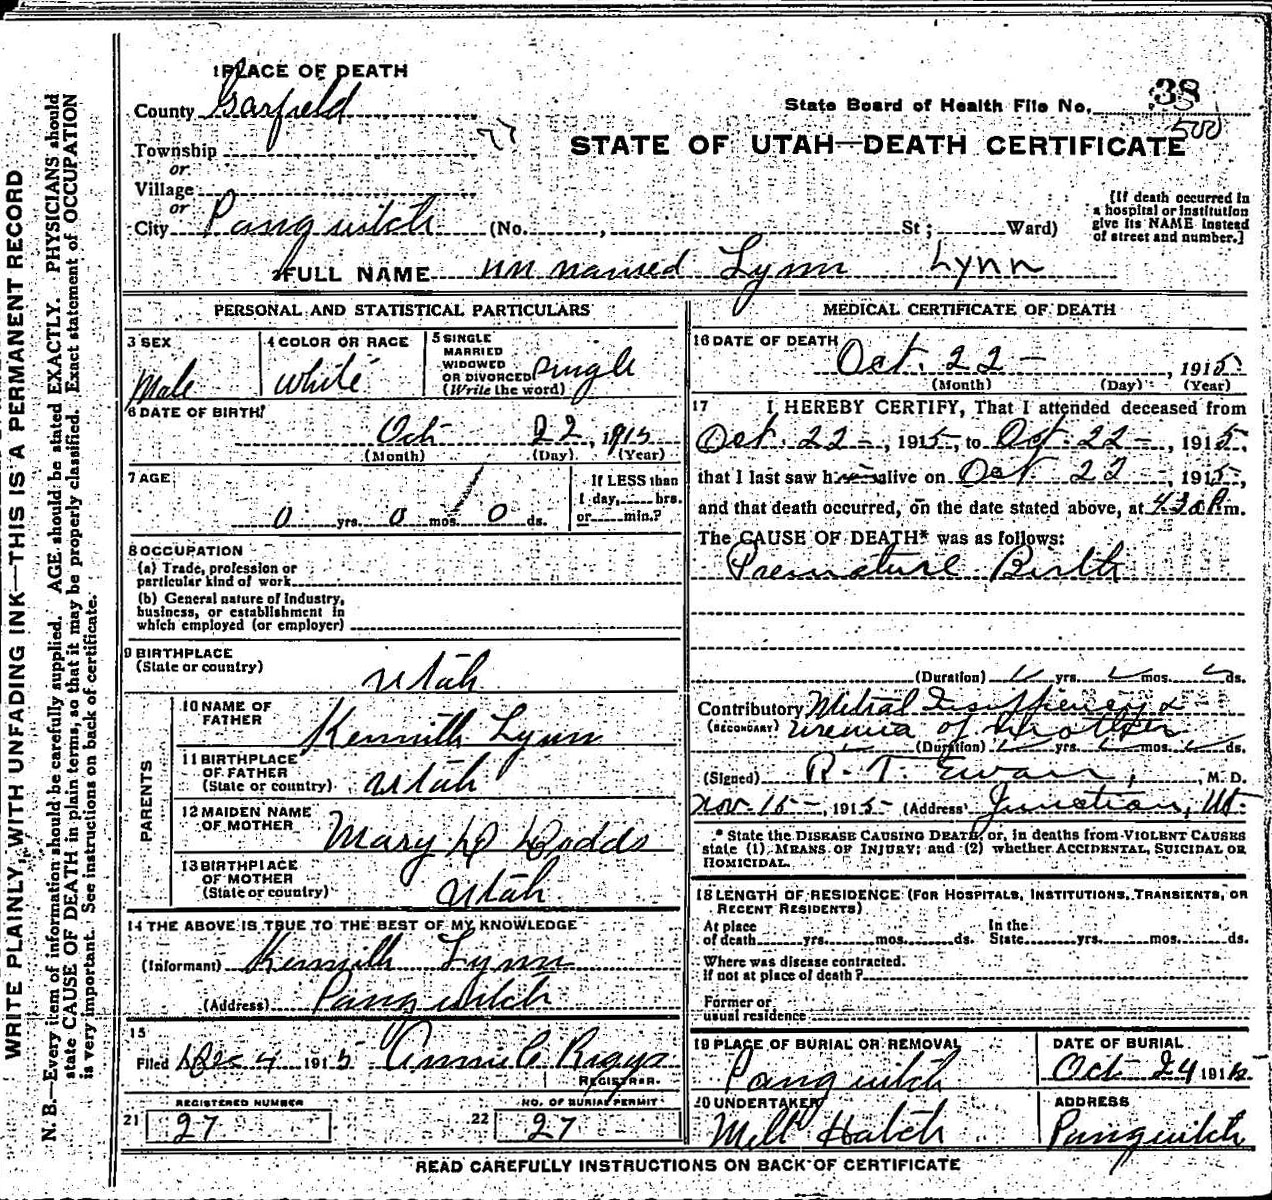 WRITE PLAINLY, WITH UNFADING INK—THIS IS A PERMANENT RECORD
N. B.—Every item of information should be carefully supplied. AGE should be stated EXACTLY. PHYSICIANS should
state CAUSE OF DEATH in plain terms, so that it may be properly classified. Exact statement of OCCUPATION
is very important. See instructions on back of certificate.
1 PLACE OF DEATH
County Garfield
Township
or
Village
or
City Panguitch (No. , St; Ward)
State Board of Health File No. 38
500
77
STATE OF UTAH—DEATH CERTIFICATE
[If death occurred in
a hospital or institution
give its NAME instead
of street and number.]
2 FULL NAME un named Lynn Lynn
PERSONAL AND STATISTICAL PARTICULARS
3 SEX
Male
4 COLOR OR RACE
White
5 SINGLE
MARRIED
WIDOWED
OR DIVORCED
(Write the word)
Single
6 DATE OF BIRTH
Oct 22, 1915
(Month) (Day) (Year)
7 AGE
0 yrs. 0 mos. 0 ds.
If LESS than
1 day, hrs.
or min.?
8 OCCUPATION
(a) Trade, profession or
particular kind of work
(b) General nature of industry,
business, or establishment in
which employed (or employer)
9 BIRTHPLACE
(State or country)
Utah
PARENTS
10 NAME OF
FATHER
Kennith Lynn
11 BIRTHPLACE
OF FATHER
(State or country)
Utah
12 MAIDEN NAME
OF MOTHER
Mary D Dodds
13 BIRTHPLACE
OF MOTHER
(State or country)
Utah
14 THE ABOVE IS TRUE TO THE BEST OF MY KNOWLEDGE
(Informant) Kennith Lynn
(Address) Panguitch
15
Filed Dec 4 1915 Annie C Riggs
REGISTRAR.
REGISTERED NUMBER
21 27
NO. OF BURIAL PERMIT
22 27
MEDICAL CERTIFICATE OF DEATH
16 DATE OF DEATH
Oct. 22 -, 1915
(Month) (Day) (Year)
17 I HEREBY CERTIFY, That I attended deceased from
Oct. 22 -, 1915, to Oct. 22 -, 1915,
that I last saw h alive on Oct. 22, 1915,
and that death occurred, on the date stated above, at 4.30 P.m.
The CAUSE OF DEATH* was as follows:
Premature Birth
(Duration) yrs. mos. ds.
Contributory Mitral Insufficiency &
(SECONDARY) Uremia of Mother
(Duration) yrs. mos. ds.
(Signed) R. T. Evans, M. D.
Nov. 15 -, 1915 (Address) Junction, Ut.
* State the DISEASE CAUSING DEATH, or, in deaths from VIOLENT CAUSES
state (1) MEANS OF INJURY; and (2) whether ACCIDENTAL, SUICIDAL OR
HOMICIDAL.
18 LENGTH OF RESIDENCE (FOR HOSPITALS, INSTITUTIONS, TRANSIENTS, OR
RECENT RESIDENTS)
At place In the
of death yrs. mos. ds. State yrs. mos. ds.
Where was disease contracted.
if not at place of death?
Former or
usual residence
19 PLACE OF BURIAL OR REMOVAL
Panguitch
DATE OF BURIAL
Oct 24 1915
20 UNDERTAKER
Melt Hatch
ADDRESS
Panguitch
READ CAREFULLY INSTRUCTIONS ON BACK OF CERTIFICATE